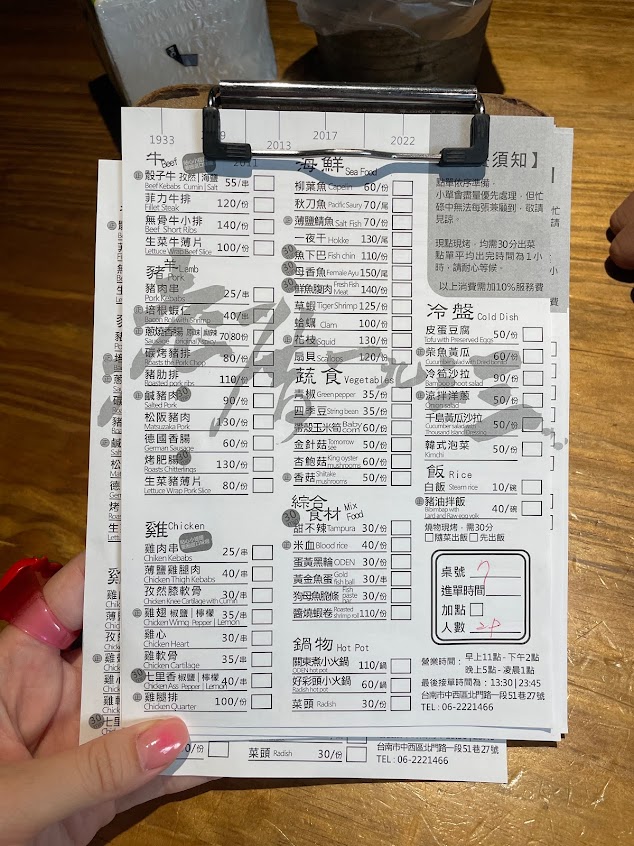 1933
2011
2013
2017
2022
牛 Beef
骰子牛 孜然|海鹽 55/串
Beef Kebabs Cumin | Salt
菲力牛排 120/份
Fillet Steak
無骨牛小排 140/份
Beef Short Ribs
生菜牛薄片 100/份
Lettuce Wrap Beef Slice
豬 Pork 羊 Lamb
豬肉串 25/串
Pork Kebabs
培根蝦仁 40/串
Bacon Roll with Shrimp
蔥燒香腸 70|80份
Sausage
碳烤豬排 80/份
Roasts the Pork Chop
豬肋排 110/份
Roasted pork ribs
鹹豬肉 90/份
Salted Pork
松阪豬肉 130/份
Matsuzaka Pork
德國香腸 60/份
German Sausage
烤肥腸 130/份
Roasts Chitterlings
生菜豬薄片 80/份
Lettuce Wrap Pork Slice
雞 Chicken
雞肉串 25/串
Chiken Kebabs
薄鹽雞腿肉 40/串
Chicken Thigh Kebabs
孜然膝軟骨 30/份
Chicken Knee Cartilage with Cumin
雞翅 椒鹽|檸檬 35/串
Chicken Wimg Pepper | Lemon
雞心 30/串
Chicken Heart
雞軟骨 35/串
Chicken Cartilage
七里香 椒鹽|檸檬 40/串
Chicken Ass Pepper | Lemon
雞腿排 100/份
Chicken Quarter
海鮮 Sea Food
柳葉魚 Capelin 60/份
秋刀魚 Pacific Saury 70/尾
薄鹽鯖魚 Salt Fish 70/份
一夜干 Hokke 130/尾
魚下巴 Fish chin 110/份
母香魚 Female Ayu 150/尾
鮮魚腹肉 Fresh Fish Meat 140/份
草蝦 Tiger Shrimp 125/份
蛤蠣 Clam 100/份
花枝 Squid 130/份
扇貝 Scallops 120/份
蔬食 Vegetables
青椒 Green pepper 35/份
四季豆 String bean 35/份
帶殼玉米筍 Baby corn 60/份
金針菇 Tomorrow see 50/份
杏鮑菇 King oyster mushrooms 60/份
香菇 Shiitake mushrooms 50/份
綜合食材 Mix Food
甜不辣 Tampura 30/份
米血 Blood rice 40/份
蛋黃黑輪 ODEN 30/份
黃金魚蛋 Gold fish ball 30/串
狗母魚脆條 Fish paste bar 30/份
醬燒蝦卷 Roasted shrimp roll 110/份
鍋物 Hot Pot
關東煮小火鍋 110/鍋
ODEN hot pot
好彩頭小火鍋 60/鍋
Radish hot pot
菜頭 Radish 30/份
須知】
點單依序準備，
小單會盡量優先處理，但忙
碌中無法每張兼顧到，敬請
見諒。
現點現烤，均需30分出菜
點單平均出完時間為1小
時，請耐心等候。
以上消費需加10%服務費
冷盤 Cold Dish
皮蛋豆腐 50/份
Tofu with Preserved Eggs
柴魚黃瓜 60/份
冷筍沙拉 90/份
Bamboo shoot salad
涼拌洋蔥 50/份
Onion salad
千島黃瓜沙拉 50/份
Cucumber salad with
Thousand Island Dressing
韓式泡菜 50/份
Kimchi
飯 Rice
白飯 Steam rice 10/碗
豬油拌飯 40/碗
Bibimbap with
Lard and Raw egg yolk
燒物現烤，需30分
□隨菜出飯□先出飯
桌號 7
進單時間
加點
人數 2
營業時間：早上11點 - 下午2點
晚上5點 - 凌晨1點
最後接單時間為：13:30|23:45
台南市中西區北門路一段51巷27號
TEL : 06-2221466
70/份
菜頭 Radish 30/份
台南市中西區北門路一段51巷27號
TEL : 06-2221466